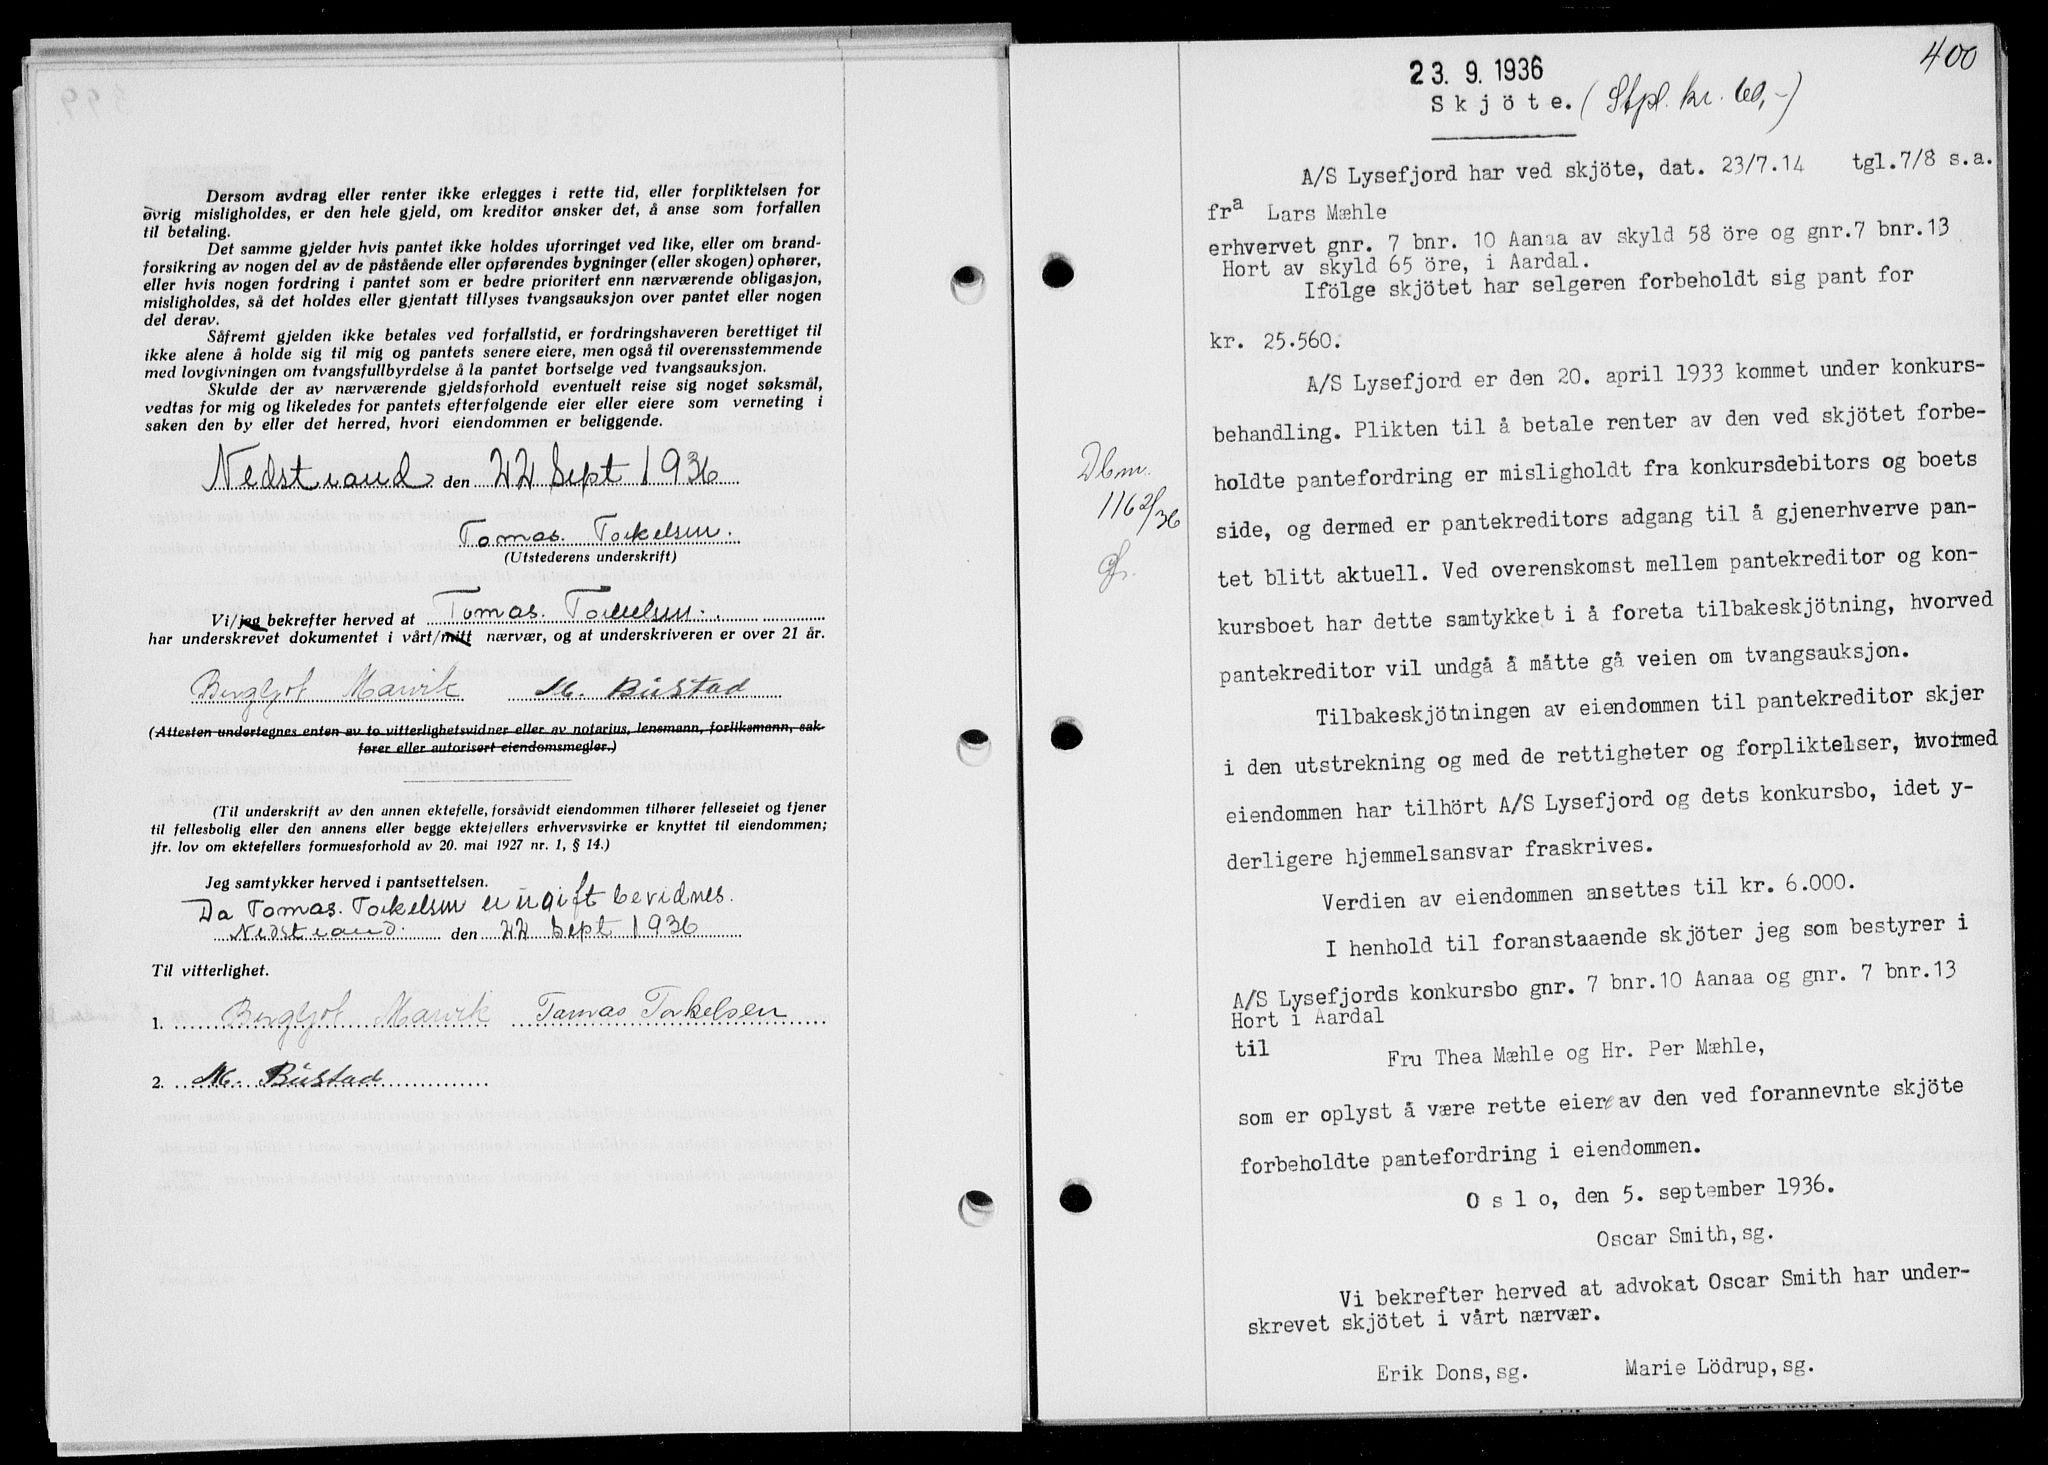 Dersom avdrag eller renter ikke erlegges i rette tid, eller forpliktelsen for
øvrig misligholdes, er den hele gjeld, om kreditor ønsker det, å anse som forfallen
til betaling.
Det samme gjelder hvis pantet ikke holdes uforringet ved like, eller om brand-
forsikring av nogen del av de påstående eller opførendes bygninger (eller skogen) ophører,
eller hvis nogen fordring i pantet som er bedre prioritert enn nærværende obligasjon,
misligholdes, så det holdes eller gjentatt tillyses tvangsauksjon over pantet eller nogen
del derav.
Såfremt gjelden ikke betales ved forfallstid, er fordringshaveren berettiget til
ikke alene å holde sig til mig og pantets senere eiere, men også til overensstemmende
med lovgivningen om tvangsfullbyrdelse å la pantet bortselge ved tvangsauksjon.
Skulde der av nærværende gjeldsforhold eventuelt reise sig noget søksmål,
vedtas for mig og likeledes for pantets efterfølgende eier eller eiere som verneting i
saken den by eller det herred, hvori eiendommen er beliggende.
Nedstrand den 22 Sept 1936
Tomas Torkelsen.
(Utstederens underskrift)
Vi/jeg bekrefter herved at Tomas Torkelsen
har underskrevet dokumentet i vårt/mitt nærvær, og at underskriveren er over 21 år.
Bergljot Marvik M. Bustad
(Attesten undertegnes enten av to vitterlighetsvidner eller av notarius, lensmann, forliksmann, sak-
fører eller autorisert eiendomsmegler.)
(Til underskrift av den annen ektefelle, forsåvidt eiendommen tilhører felleseiet og tjener
til fellesbolig eller den annens eller begge ektefellers erhvervsvirke er knyttet til eiendommen;
jfr. lov om ektefellers formuesforhold av 20. mai 1927 nr. 1, § 14.)
Jeg samtykker herved i pantsettelsen.
Da Tomas. Torkelsen er ugift bevidnes.
Nedstrand den 22 Sept 1936
Til vitterlighet.
1. Bergljot Marvik Tomas Torkelsen
2. M. Bustad
400
23. 9. 1936
Skjöte. (Stpl. kr. 60,-)
A/S Lysefjord har ved skjöte, dat. 23/7.14 tgl.7/8 s.a.
fra Lars Mæhle
erhvervet gnr. 7 bnr. 10 Aanaa av skyld 58 öre og gnr.7 bnr.13
Hort av skyld 65 öre, i Aardal.
Ifölge skjötet har selgeren forbeholdt sig pant for
kr. 25.560.
A/S Lysefjord er den 20. april 1933 kommet under konkurs-
behandling. Plikten til å betale renter av den ved skjötet forbe-
holdte pantefordring er misligholdt fra konkursdebitors og boets
side, og dermed er pantekreditors adgang til å gjenerhverve pan-
tet blitt aktuell. Ved overenskomst mellem pantekreditor og kon-
kursboet har dette samtykket i å foreta tilbakeskjötning, hvorved
pantekreditor vil undgå å måtte gå veien om tvangsauksjon.
Dbm.
1162/36
Tilbakeskjötningen av eiendommen til pantekreditor skjer
i den utstrekning og med de rettigheter og forpliktelser, hvormed
eiendommen har tilhört A/S Lysefjord og dets konkursbo, idet y-
derligere hjemmelsansvar fraskrives.
Verdien av eiendommen ansettes til kr. 6.000.
I henhold til foranstaaende skjöter jeg som bestyrer i
A/S Lysefjords konkursbo gnr. 7 bnr.10 Aanaa og gnr. 7 bnr.13
Hort i Aardal
til
Fru Thea Mæhle og Hr. Per Mæhle,
som er oplyst å være rette eiere av den ved forannevnte skjöte
forbeholdte pantefordring i eiendommen.
Oslo, den 5. september 1936.
Oscar Smith, sg.
Vi bekrefter herved at advokat Oscar Smith har under-
skrevet skjötet i vårt nærvær.
Erik Dons, sg. Marie Lödrup, sg.